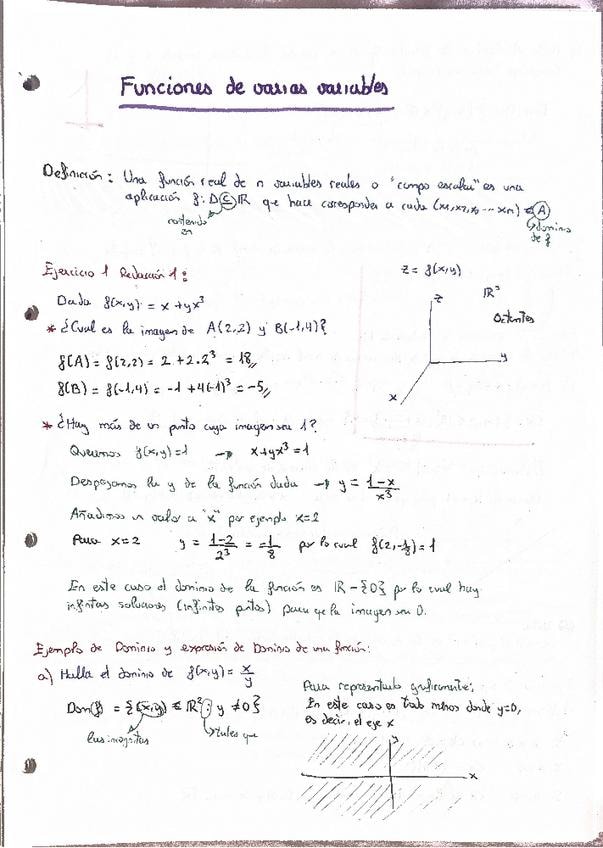 Funciones de varias variables
Definición: Una función real de n variables reales o "campo escalar" es una
aplicación f: D ⊆ ℝ que hace corresponder a cada (x₁, x₂, x₃ ... xₙ) ∈ A
contenido
en
dominio
de f
Ejercicio 1 Relación 1:
z = f(x,y)
ℝ³
Octantes
z
y
x
Dada f(x,y) = x + yx³
* ¿Cual es la imagen de A(2,2) y B(-1,4)?
f(A) = f(2,2) = 2 + 2·2³ = 18
f(B) = f(-1,4) = -1 + 4(-1)³ = -5
* ¿Hay más de un punto cuya imagen sea 1?
Queremos f(x,y)=1 → x+yx³=1
Despejamos la y de la función dada → y = (1-x)/x³
Añadimos un valor a "x" por ejemplo x=2
Para x=2 y = (1-2)/2³ = -1/8 por lo cual f(2,-1/8)=1
En este caso el dominio de la función es ℝ-{0} por lo cual hay
infinitas soluciones (infinitos ptos) para q la imagen sea 0.
Ejemplo de Dominio y expresión de Dominio de una función:
a) Halla el dominio de f(x,y) = x/y
Dom(f) = {(x,y) ∈ ℝ² : y ≠ 0}
las incógnitas
tales que
Para representarlo graficamente:
En este caso es todo menos donde y=0,
es decir, el eje x
y
x